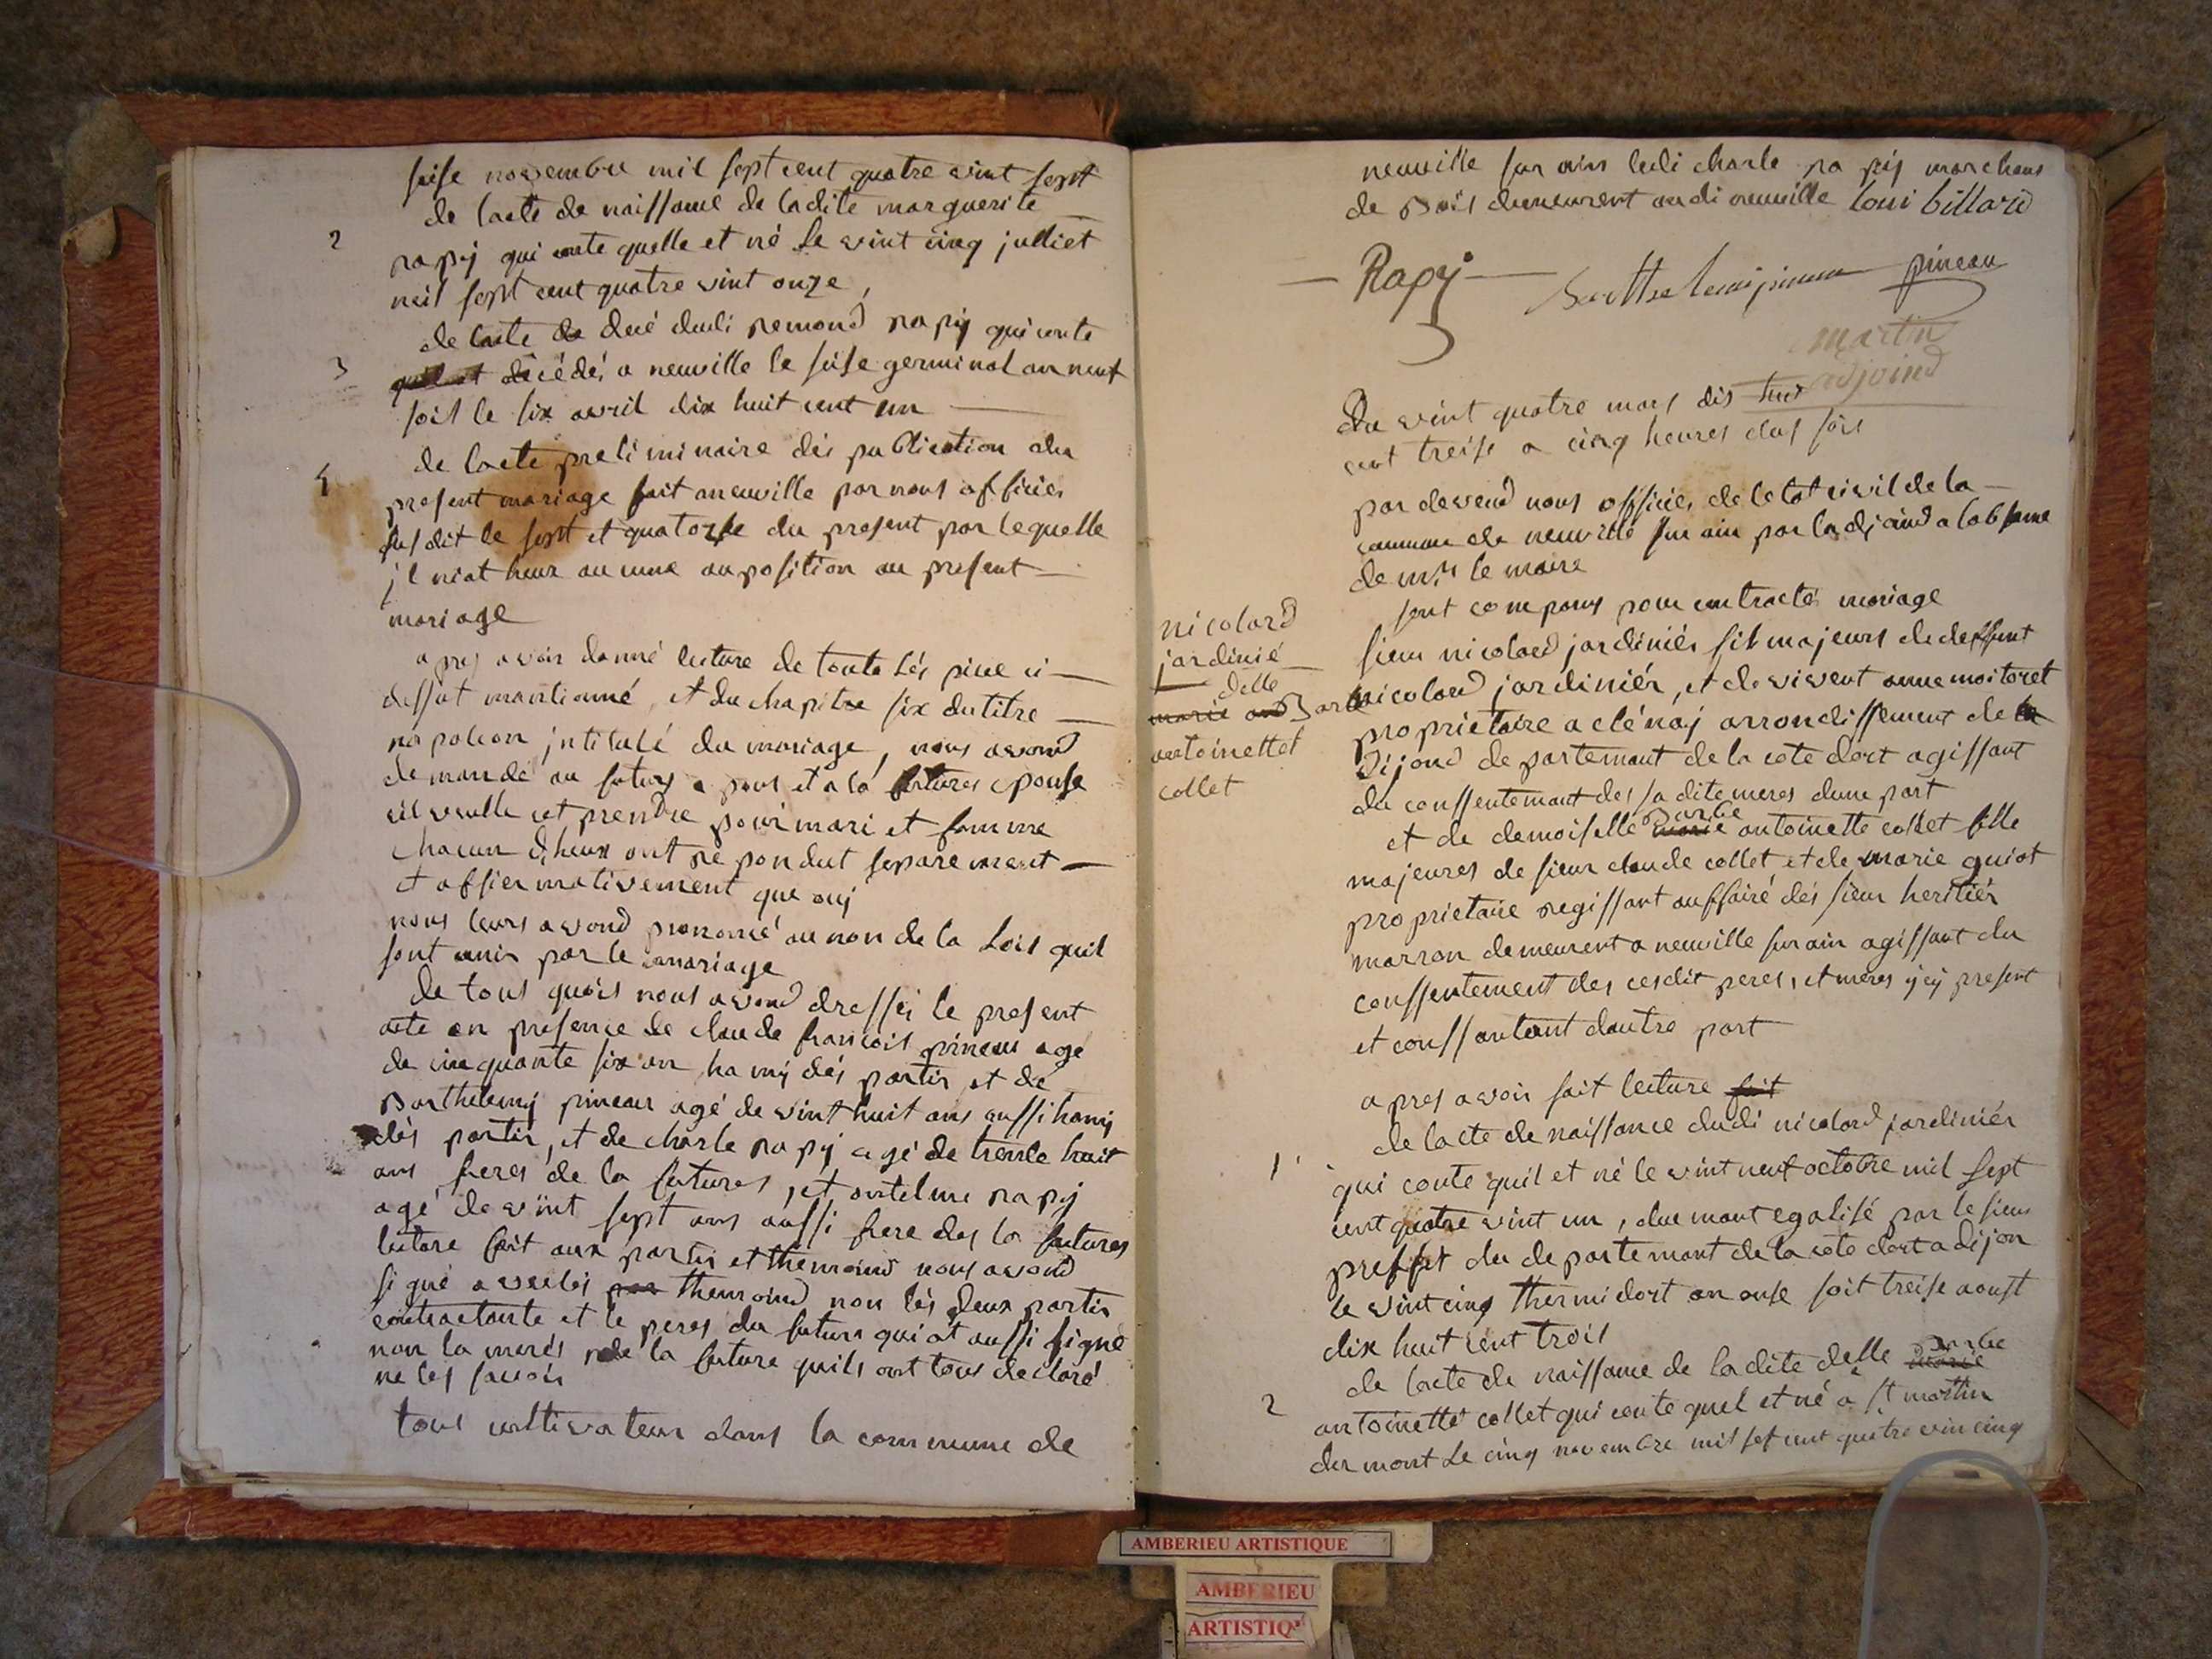 seise novembre mil sept cent quatre vint sept
de lacte de naissance de ladite marguerite
2
rapÿ qui conte quelle et né le vint cinq julliet
mil sept cent quatre vint onze,
de lacte de decé dudi remond rapÿ qui conte
3
quil et décédé, a neuville le seise germinal an neuf
soit le six avril dix huit cent un
de lacte preliminaire dés publication du
4
present mariage fait aneuville par nous afficier
susdit le sept et quatorse du present par lequelle
jl niat heux aucune auposition au present
mariage
apres avoir donné lecture de toute lés piece ci
dessut mantionné, et du chapitre six du titre
napoleon jntitulé du mariage, nous avond
demandé au futurs epous et a la futures epouse
sil veulle cet prendre pour mari et famme
chacun dheux ont repondut separement
et affiermativement que ouj
nous leurs avond prononcé au non de la Lois quil
sont unis par le mariage
de tous quois nous avond dressés le present
acte en presence de claude francois pineau age
de cinquante six an, hamÿ dés partis et de
Barthelemÿ pineau agé de vint huit ans aussi hamÿ
dés partis, et de charle rapÿ agé de trente huit
ans freres de la futures, et antelme rapÿ
agé de vint sept ans aussi frere des la futures
lecture fait aux partis et themoind nous avond
signé a veclés themoind non lés deux partis
contractante et le peres du futurs qui at aussi signé
non la merés de la future quils ont tous declaré
ne les savoir
tous cultivateur dans la commune de
neuville sur ains ledi charle rapÿ marchans
de Bois demeurent audi neuville loui billard
Rapÿ
pineau
martin
adjoind
Du vint quatre mars dis huit
cent treise a cinq heures dus soir
par devend nous officier de letat civil de la
commune de neuville sur ain par ladjoind a labsence
de mr le maire
sont comparus pour contracté mariage
nicolard
jardinié
delle
marie Barbe
antoinettet
collet
sieur nicolard jardiniér fils majeurs de deffunt
nicolard jardiniér, et de vivent anne moitoret
proprietaire a clénaj arrondissement de
Dijond departemant de la cote dort agissant
du conssentemant des sa dite meres dune part
Barbe
et de demoiselle marie antoinette collet fille
majeures de sieur claude collet et de marie guiot
proprietaire regissant auffairé dés sieur heritiér
marron demeurent a neuville sur ain agissant du
conssentement des cesdit peres, et meres ÿcÿ present
et conssantant dautre part
apres avoir fait lecture fait
de lacte de naissance dudi nicolard jardiniér
1
qui conte quil et né le vint neuf octobre mil sept
cent quatre vint un, duemant egalisé par le sieur
preffet du departemant de la cote dort a dijon
le vint cinq thermidort an onse soit treise aoust
dix huit cent trois
Barbe
de lacte de naissance de ladite delle marie
2
antoinette collet qui conte quel et né a st martin
du mont le cinq novembre mil set cent quatre vin cinq
AMBERIEU ARTISTIQUE
AMBERIEU
ARTISTIQ